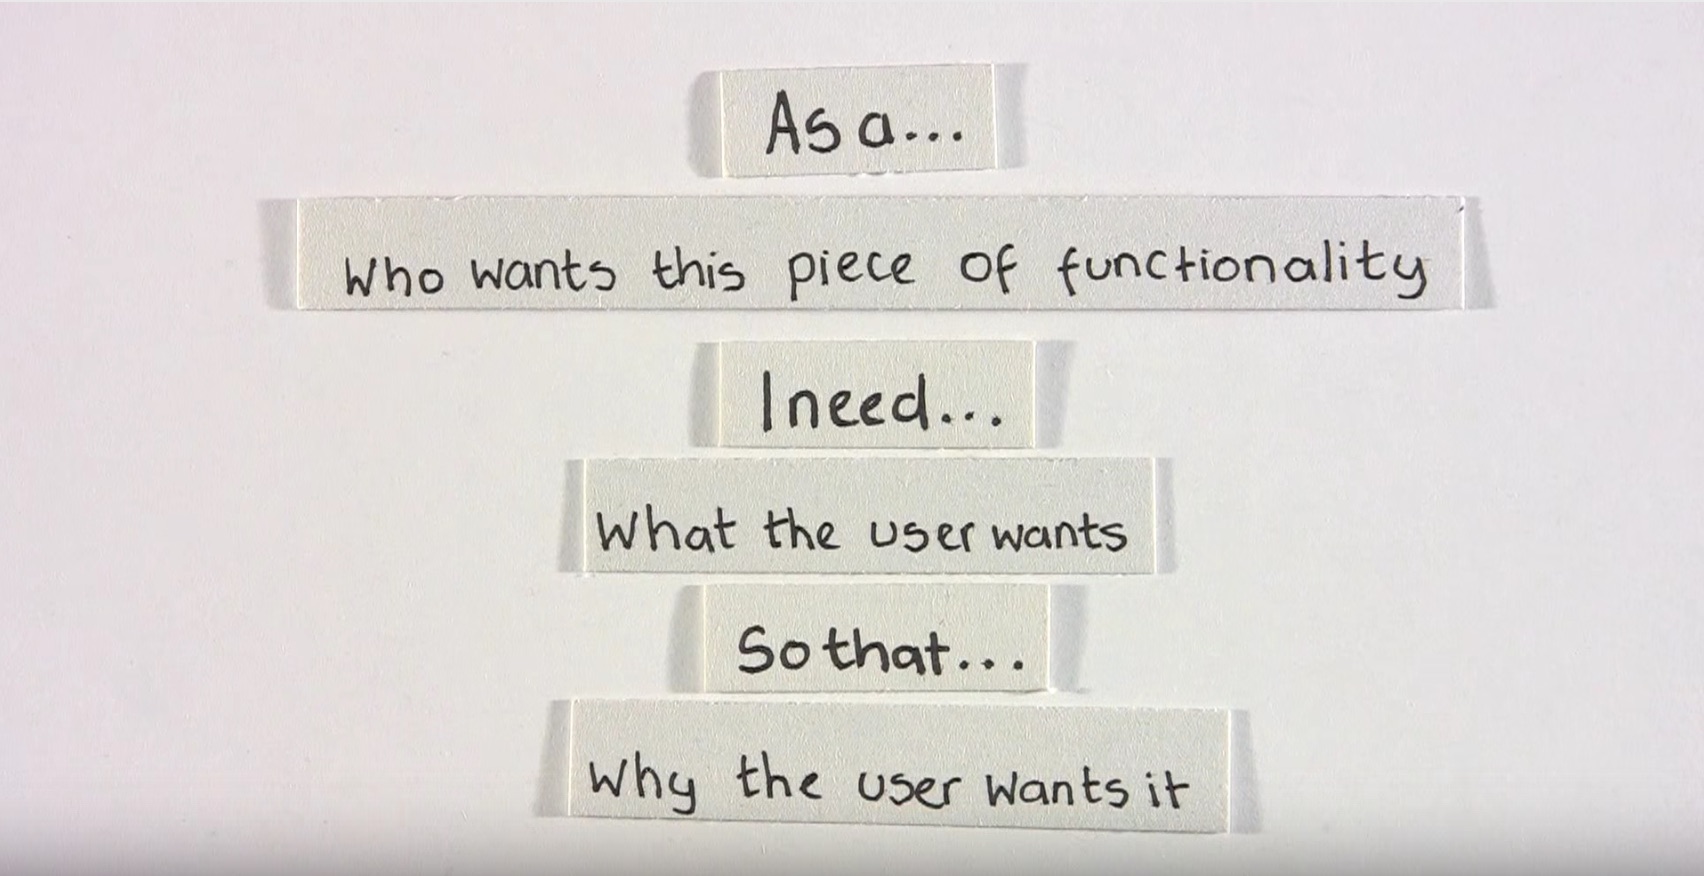 As a...
Who wants this piece of functionality
I need...
What the user wants
So that...
Why the user wants it